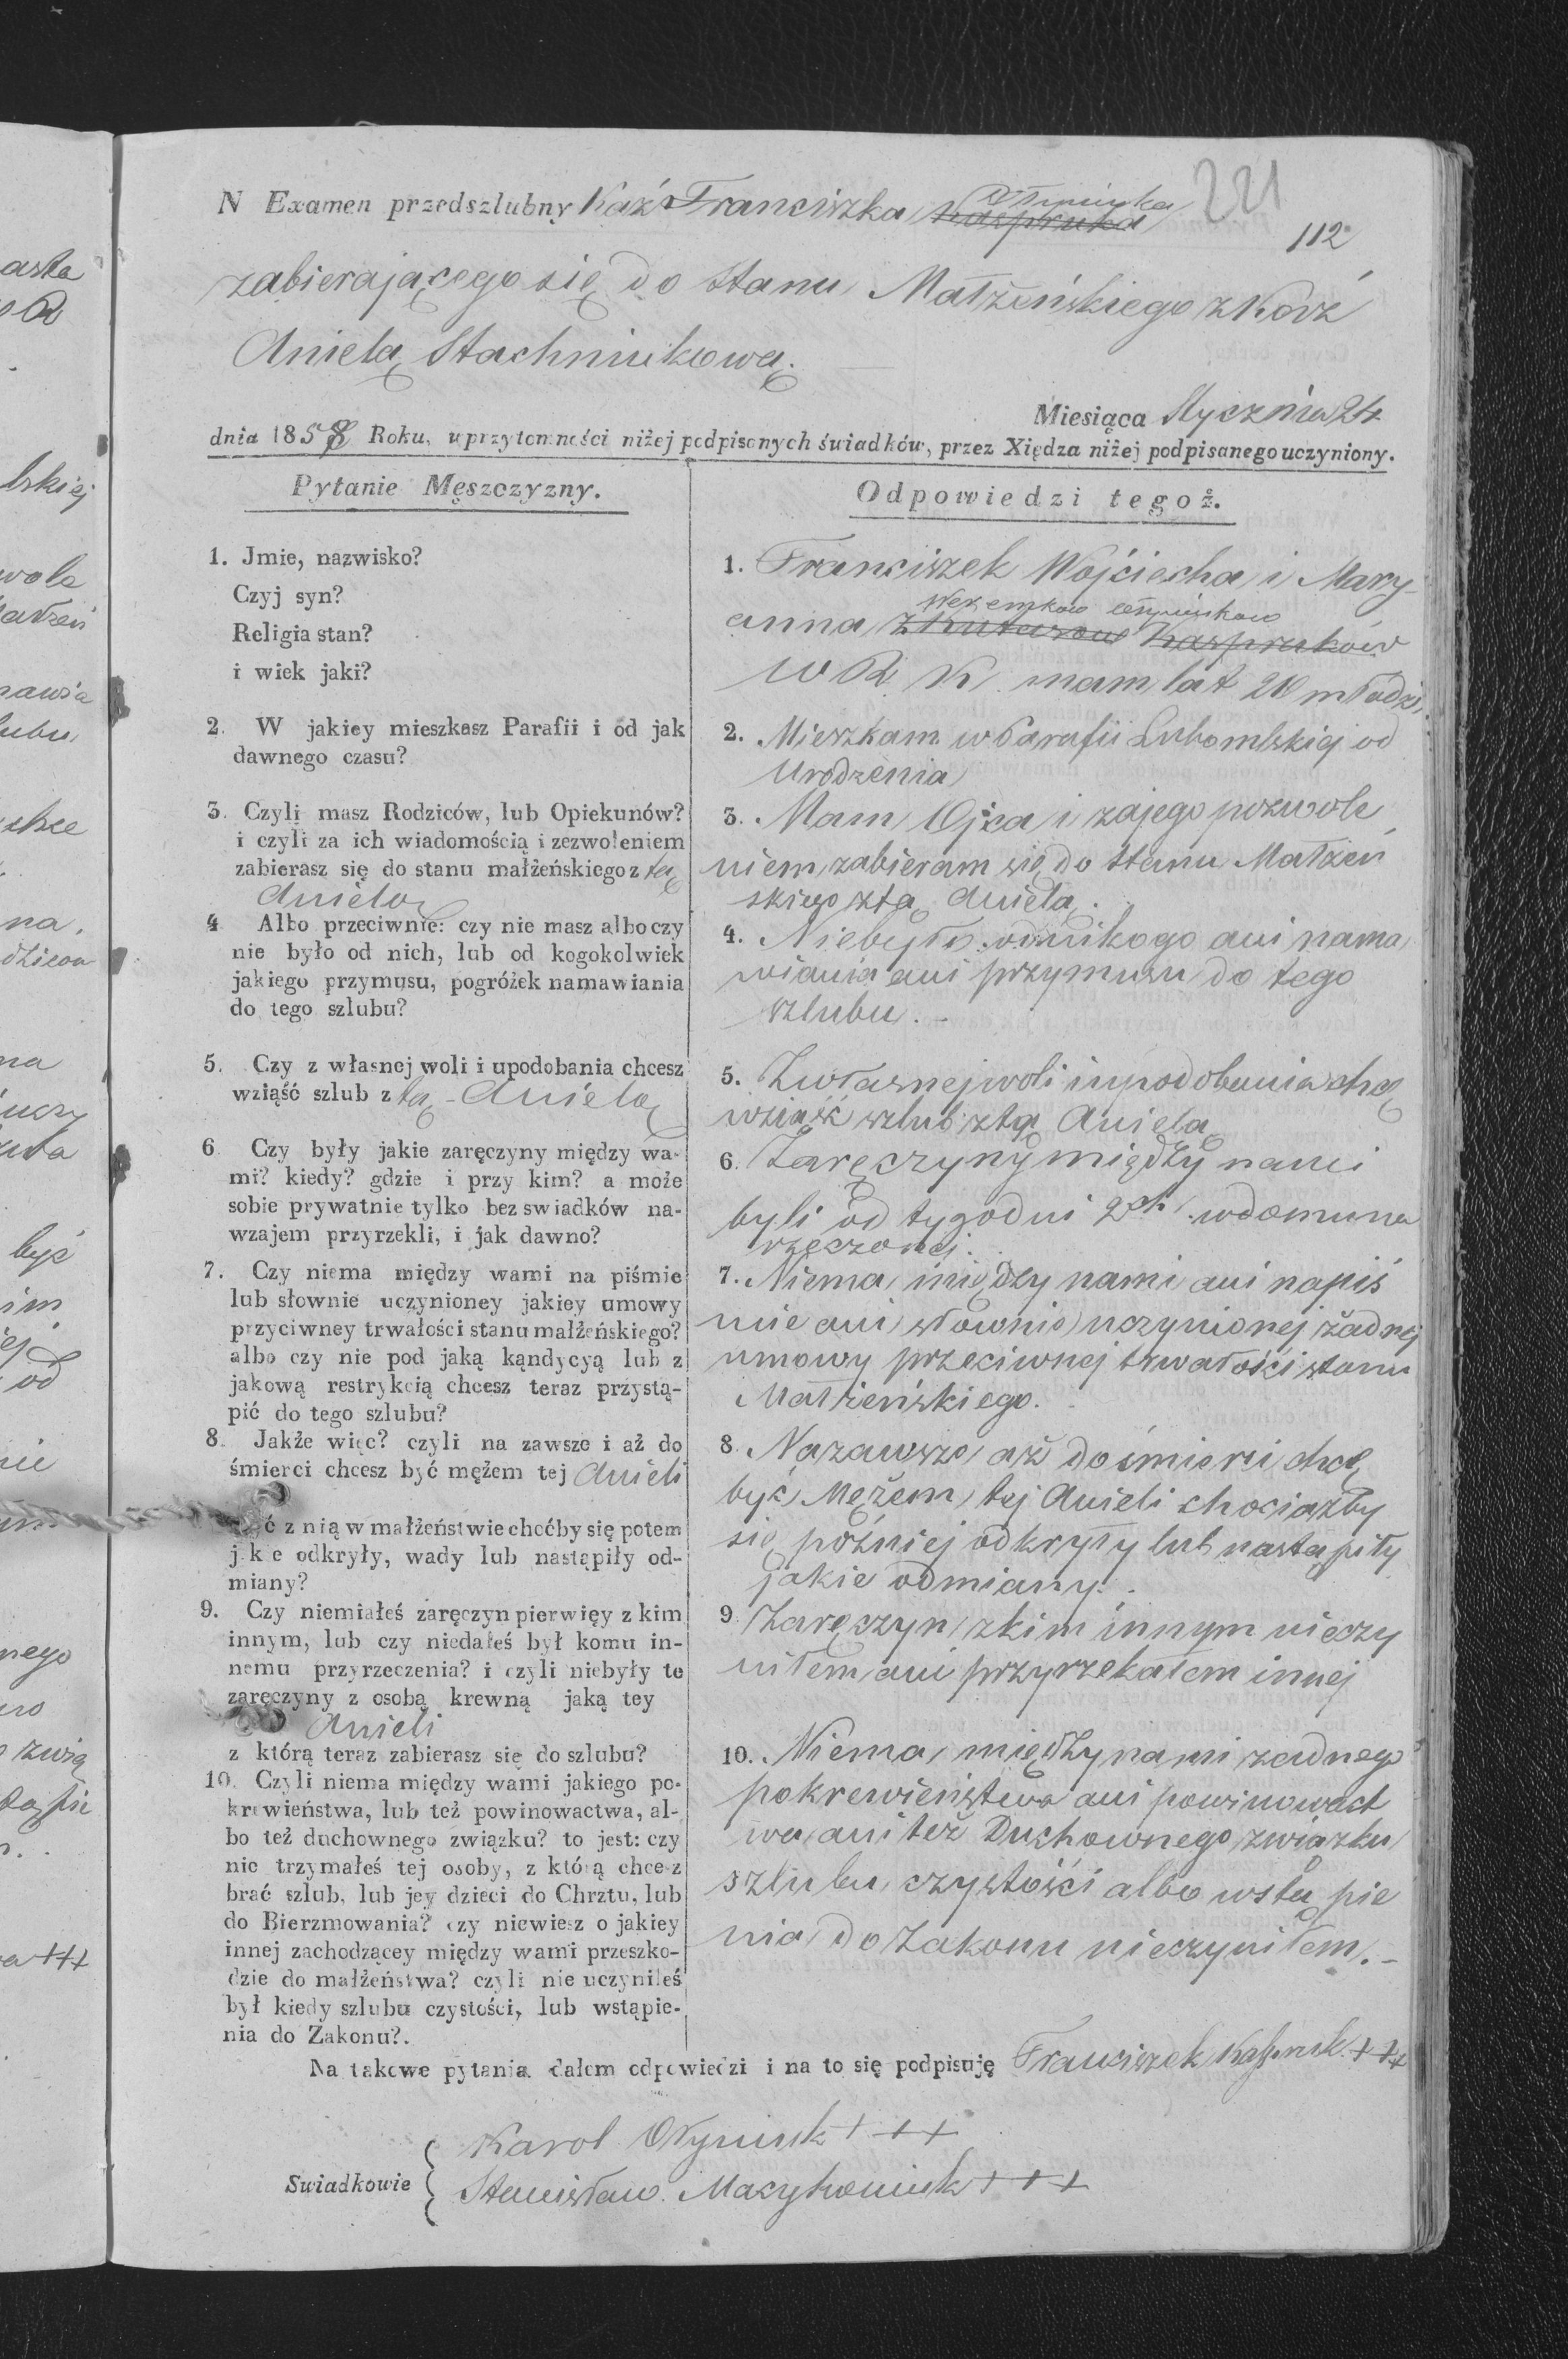 221
N Examen przedszlubny Kaź Franciszka Kaspruka
112
zabierającego się do stanu Małżeńskiego z Korź
Anielą Stachniukową.
Miesiąca Stycznia 24
dnia 1858 Roku, uprzytomności niżej podpisanych świadków, przez Xiędza niżej podpisanego uczyniony.
Pytanie Męszczyzny.
1. Jmie, nazwisko?
Czyj syn?
Religia stan?
i wiek jaki?
2. W jakiey mieszkasz Parafii i od jak
dawnego czasu?
3. Czyli masz Rodziców, lub Opiekunów?
i czyli za ich wiadomością i zezwoleniem
zabierasz się do stanu małżeńskiego z tą
Anielą
4 Albo przeciwnie: czy nie masz albo czy
nie było od nich, lub od kogokolwiek
jakiego przymusu, pogróżek namawiania
do tego szlubu?
5. Czy z własnej woli i upodobania chcesz
wziąść szlub z tą - Anielą
6 Czy były jakie zaręczyny między wa-
mi? kiedy? gdzie i przy kim? a może
sobie prywatnie tylko bez swiadków na-
wzajem przyrzekli, i jak dawno?
7. Czy niema między wami na piśmie
lub słownie uczynioney jakiey umowy
przyciwney trwałości stanu małżeńskiego?
albo czy nie pod jaką kąndycyą lub z
jakową restrykcią chcesz teraz przystą-
pić do tego szlubu?
8. Jakże więc? czyli na zawsze i aż do
śmierci chcesz być mężem tej Anieli
ć z nią w małżeństwie choćby się potem
jakie odkryły, wady lub nastąpiły od-
miany?
9. Czy niemiałeś zaręczyn pierwięy z kim
innym, lub czy niedałeś był komu in-
nemu przyrzeczenia? i czyli niebyły te
zaręczyny z osobą krewną jaką tey
Anieli
z którą teraz zabierasz się do szlubu?
10. Czyli niema między wami jakiego po-
krewieństwa, lub też powinowactwa, al-
bo też duchownego związku? to jest: czy
nie trzymałeś tej osoby, z którą chcesz
brać szlub, lub jey dzieci do Chrztu, lub
do Bierzmowania? czy niewiesz o jakiey
innej zachodzącey między wami przeszko-
dzie do małżeństwa? czyli nie uczyniłeś
był kiedy szlubu czystości, lub wstąpie-
nia do Zakonu?.
Odpowiedzi tegoż.
1. Franciszek Wojciecha i Mary-
anna z Kaspruków
W R. K. mam lat 20 młodzi.
2. Mieszkam w Parafii Lubomlskiej od
Urodzenia
3. Mam Ojca i za jego pozwole
niem zabieram się do stanu Małżeń
skiego z tą Anielą.
4. Niebyło odnikogo ani nama
wiania ani przymusu do tego
szlubu. -
5. Zwłasnej woli i upodobania chcę
wziąść szlub z tą Anielą
6. Zaręczyny między nami
byli od tygodni 2ch w domu na
rzeczonej.
7. Niema między nami ani napiś
mie ani słownie uczynionej żadnej
umowy przeciwnej trwałości stanu
Małżeńskiego.
8. Nazawsze aż do śmierci chcę
być Mężem tej Anieli chociażby
się później odkryły lub nastąpiły
jakie odmiany.
9 Zaręczyn z kim innym nieczy
niłem ani przyrzekałem innej
10. Niema między nami żadnego
pokrewieństwa ani powinowact
wa ani też Duchownego związku
szlubu czystości albo wstą pie
nia do Zakonu nieczyniłem. -
Na takowe pytania dałem odpowiedzi i na to się podpisuję Franciszek Kaspruk +++
Swiadkowie
Karol +++
Stanisław +++